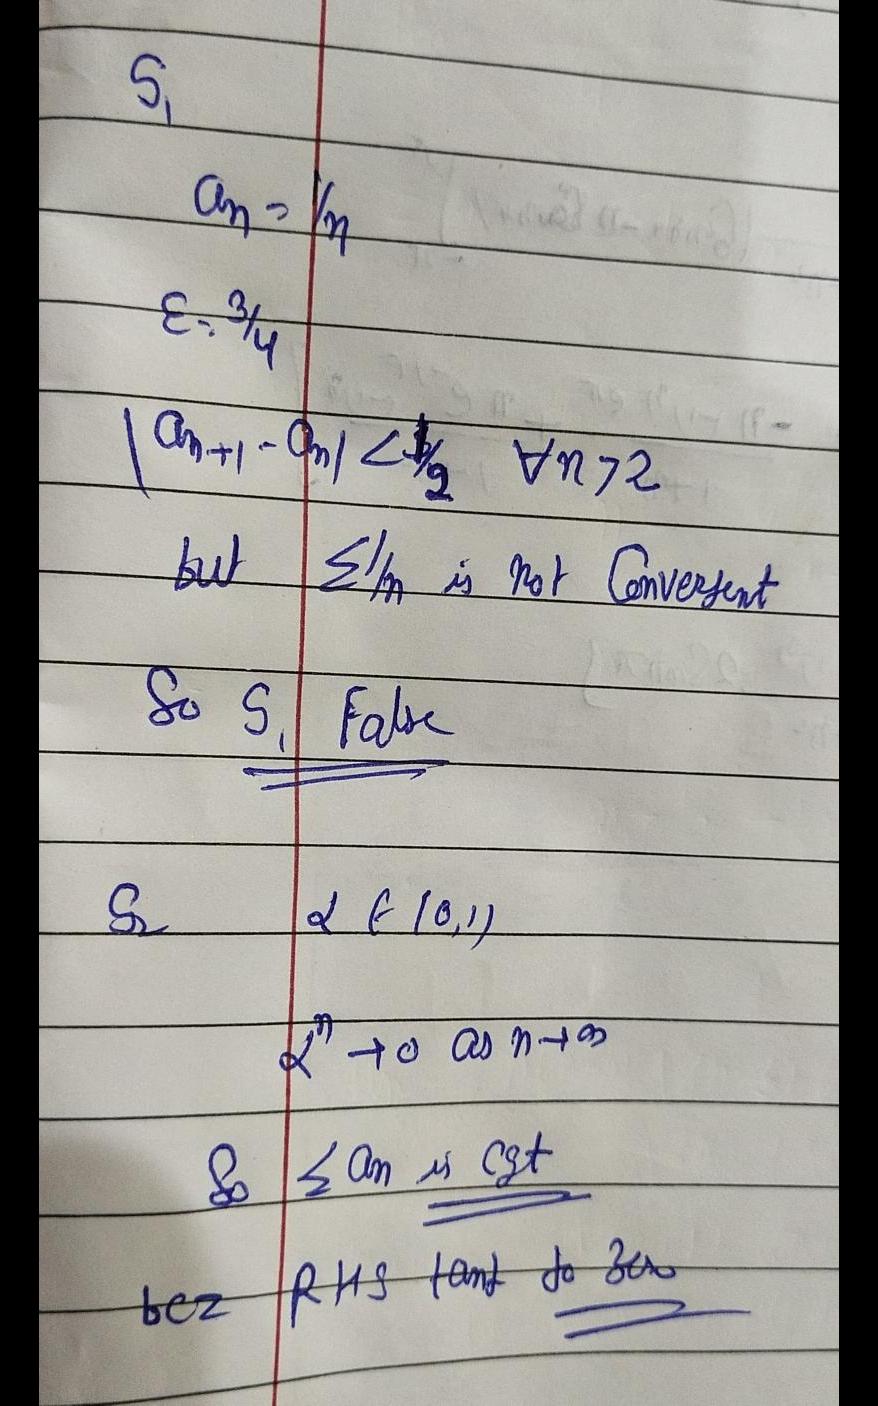 S₁
an = 1/n
ε = 3/4
|an+1 - an| < 1/2 ∀n>2
but Σ1/n is not Convergent
So S₁ False
S₂ α ∈ (0,1)
αⁿ → 0 as n→∞
So Σ an is cgt
bcz RHS tant to zero